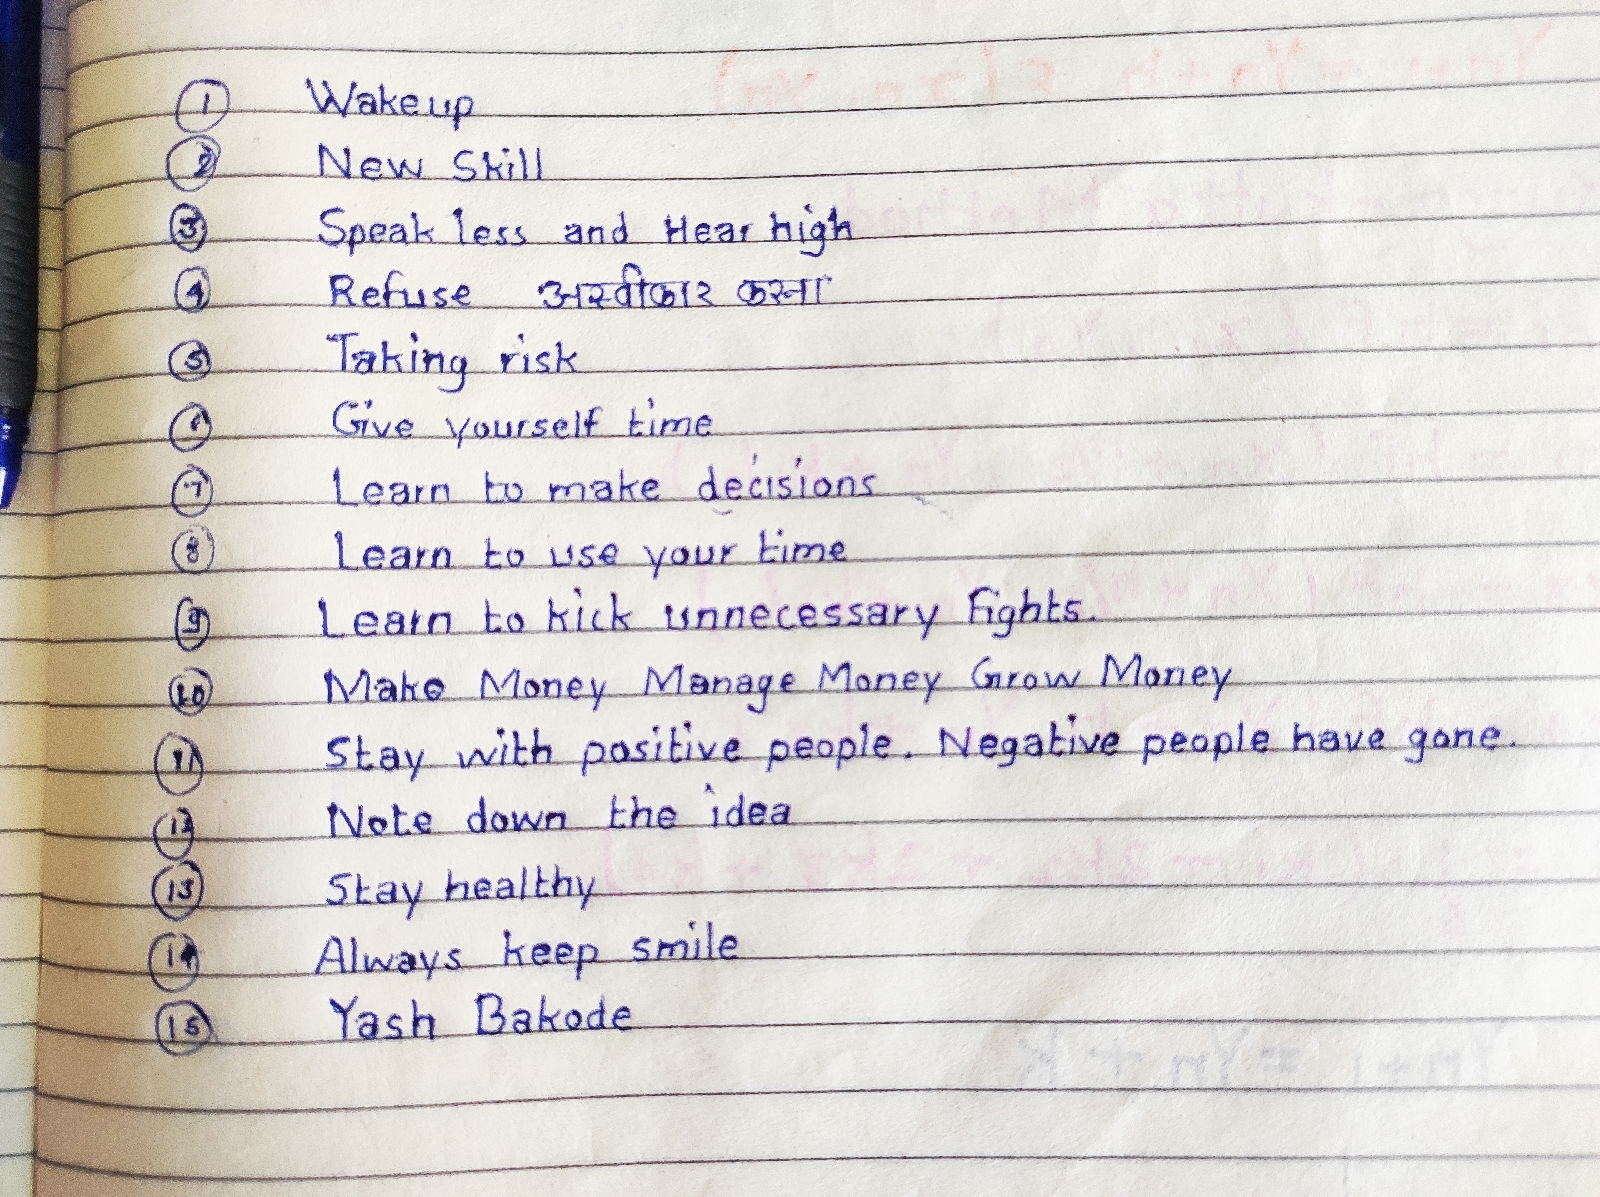 1 Wakeup
2 New Skill
3 Speak less and Hear high
4 Refuse अस्वीकार करना
5 Taking risk
6 Give yourself time
7 Learn to make decisions
8 Learn to use your time
9 Learn to kick unnecessary fights.
10 Make Money Manage Money Grow Money
11 Stay with positive people. Negative people have gone.
12 Note down the idea
13 Stay healthy
14 Always keep smile
15 Yash Bakode